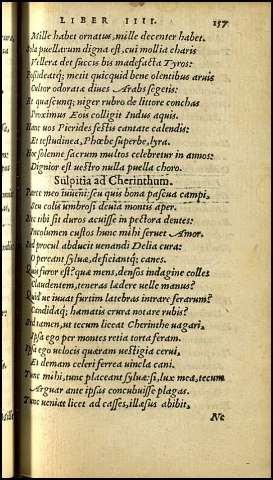 LIBER IIII. 157
Mille habet ornatus, mille decenter habet.
Sola puellarum digna est, cui mollia charis
Vellera det succis bis madefacta Tyros:
Possideatq; metit quicquid bene olentibus aruis
Cultor odoratæ diues Arabs segetis:
Et quascunq; niger rubro de littore conchas
Proximus Eois colligit Indus aquis.
Hanc uos Pierides festis cantate calendis:
Et testudinea, Phœbe superbe, lyra.
Hoc solenne sacrum multos celebretur in annos:
Dignior est uestro nulla puella choro.
Sulpitia ad Cherinthum.
Parce meo iuueni: seu quis bona pascua campi,
Seu colis umbrosi deuia montis aper.
Nec tibi sit duros acuisse in pectora dentes:
Incolumen custos hunc mihi seruet Amor.
Sed procul abducit uenandi Delia cura:
O pereant syluæ, deficiantq; canes.
Quis furor est? quæ mens, densos indagine colles
Claudentem, teneras lædere uelle manus?
Quid ue iuuat furtim latebras intrare ferarum?
Candidaq; hamatis crura notare rubis?
Sed tamen, ut tecum liceat Cherinthe uagari,
Ipsa ego per montes retia torta feram.
Ipsa ego uelocis quæram uestigia cerui,
Et demam celeri ferrea uincla cani.
Tunc mihi, tunc placeant syluæ: si, lux mea, tecum
Arguar ante ipsas concubuisse plagas.
Tunc ueniat licet ad casses, illæsus abibit,
Ne